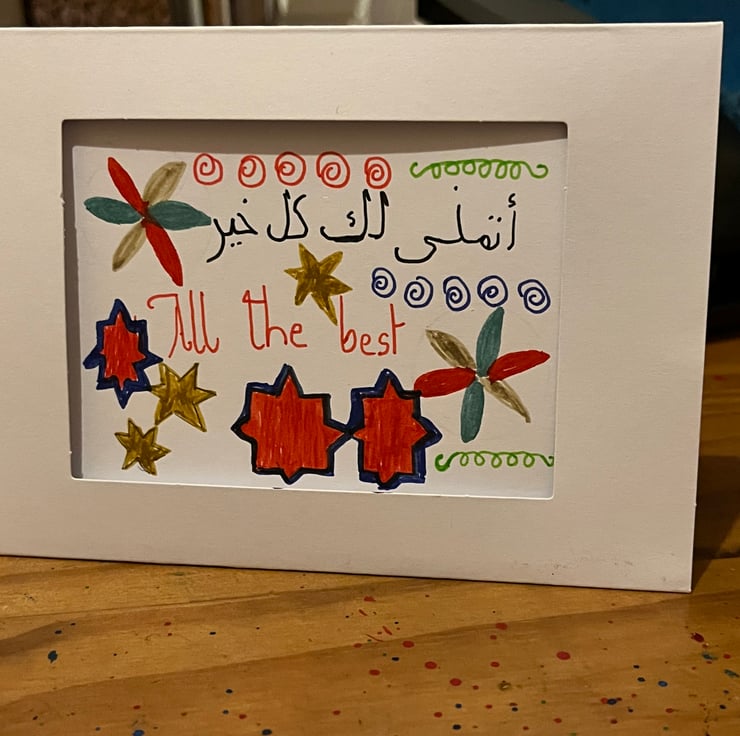 أتمنى لك كل خير
All the best